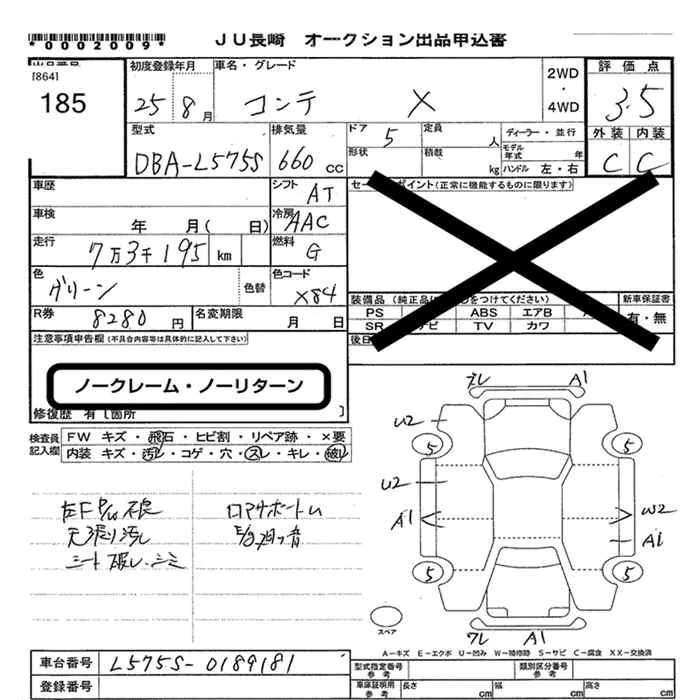 *0002009*
JU長崎 オークション出品申込書
出品番号
[864]
185
初度登録年月
25年8月
車名・グレード
コンテ X
2WD・4WD
評価点
3.5
外装 内装
C C
型式
DBA-L575S
排気量
660cc
ドア 5
定員 人
形状
積載 kg
ディーラー・並行
モデル年式 年
ハンドル 左・右
車歴
シフト AT
車検 年 月(日)
冷房 AAC
走行 7万3千195 km
燃料 G
色 グリーン 色替
色コード X84
R券 8280円
名変期限 月 日
セールスポイント(正常に機能するものに限ります)
装備品(純正品に○をつけてください)
PS ABS エアB
SR ナビ TV カワ
新車保証書
有・無
後日
注意事項申告欄(不具合内容等は具体的に記入して下さい)
ノークレーム・ノーリターン
修復歴 有[箇所 ]
検査員記入欄
FW キズ・飛石・ヒビ割・リペア跡・×要
内装 キズ・汚レ・コゲ・穴・スレ・キレ・破レ
左F P/W不良
天張り汚レ
シート破レ・シミ
ロアサポートム
E/g廻り音
ワレ A1
U2
5 5
U2
A1 W2
A1
5 5
スペア
ワレ A1
A-キズ E-エクボ U-凹み W-補修跡 S-サビ C-腐食 XX-交換済
車台番号 L575S-0189181
登録番号
型式指定番号 参考
類別区分番号 参考
車庫証明用 参考 長さ cm 幅 cm 高さ cm